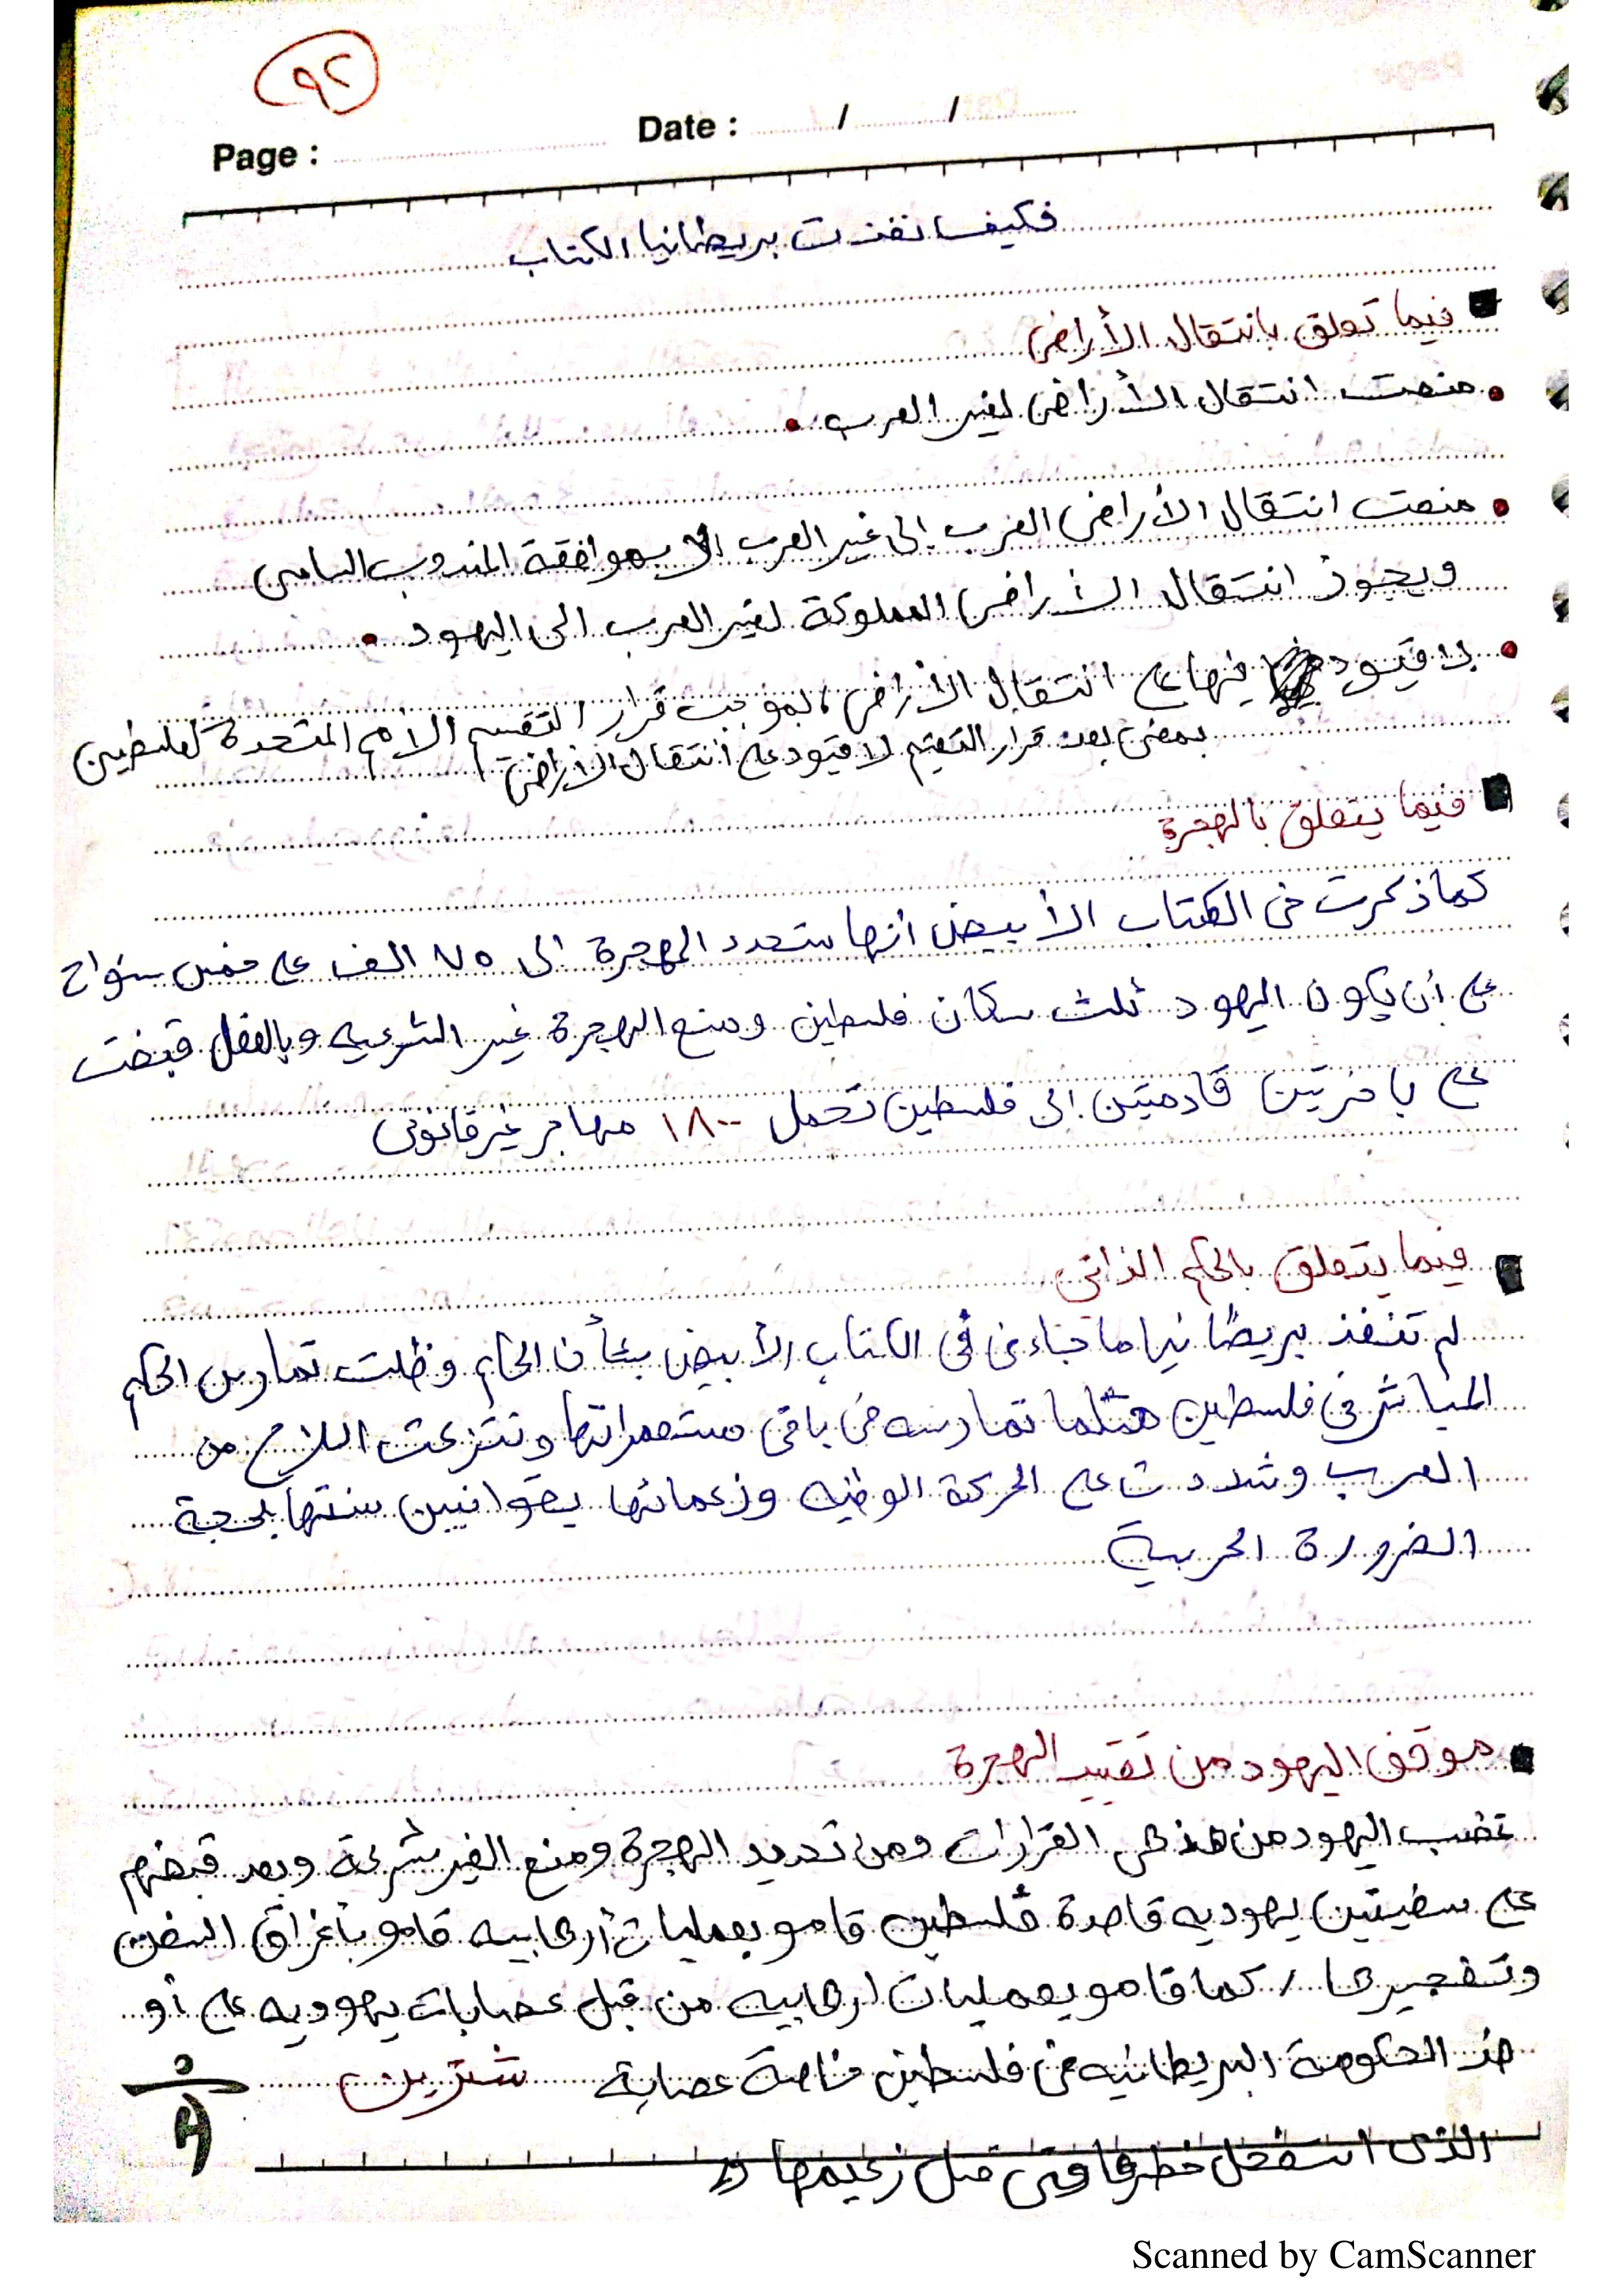 ٩٢
Page :
Date : / /
فكيف نفذت بريطانيا الكتاب
فيما تعلق بانتقال الأراضى
منعت انتقال الأراضى لغير العرب
منعت انتقال الأراضى العرب الى غير العرب الا بموافقة المندوب السامى
ويجوز انتقال الأراضى المملوكة لغير العرب الى اليهود
لا قيود فيها على انتقال الأراضى بموجب قرار التقسيم الامم المتحدة لفلسطين
بمعنى بعد قرار التقيم لا قيود على انتقال الأراضى
فيما يتعلق بالهجرة
كما ذكرت فى الكتاب الأبيض أنها ستحدد الهجرة الى ٧٥ الف على خمس سنوات
على أن يكون اليهود ثلث سكان فلسطين ومنع الهجرة غير الشرعيه وبالفعل قبضت
على باخرتين قادمتين إلى فلسطين تحمل ١٨٠٠ مهاجر غير قانونى
فيما يتعلق بالحكم الذاتى
لم تنفذ بريطانيا ما جاء فى الكتاب الأبيض بشأن الحكم وظلت تمارس الحكم
المباشر فى فلسطين مثلما تمارسه فى باقى مستعمراتها ونتزعت السلاح من
العرب وشددت على الحركة الوطنيه وزعمائها بقوانيين سنتها بحجة
الضرورة الحربية
موقف اليهود من تقييد الهجرة
غضب اليهود من هذهى القرارات ومن تحديد الهجرة ومنع الغير شرعية وبعد قبضهم
على سفينتين يهوديه قاصدة فلسطين قامو بعمليات أرهابيه قامو بأغراق السفن
وتفجيرها / كما قامو بعمليات ارهابيه من قبل عصابات يهوديه على أو
ضد الحكومة البريطانيه فى فلسطين خاصة عصابة شترين
الذى استفحل خطرها حتى قتل زعيمها
Scanned by CamScanner